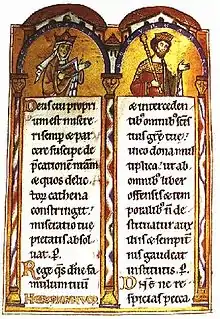 Deus cui propri
um est misere
ri semp & par
cere suscipe de
p̄cationem nr̄am
& quos delic
toꝝ cathena
constringit:
miseratio tue
pietatis absol
uat. P.
Rege q̄s dn̄e fa
mulum tuū
& intercedenti
bꝰ omnibꝰ sc̄is
tuis gr̄e tue
in eo dona mul
tiplica: ut ab
omnibꝰ liber
offensis & tem
poralibꝰ n̄ de
stituatur aux
iliis & sempit
nis gaudeat
institutis. P.
ne re
spicias pecca